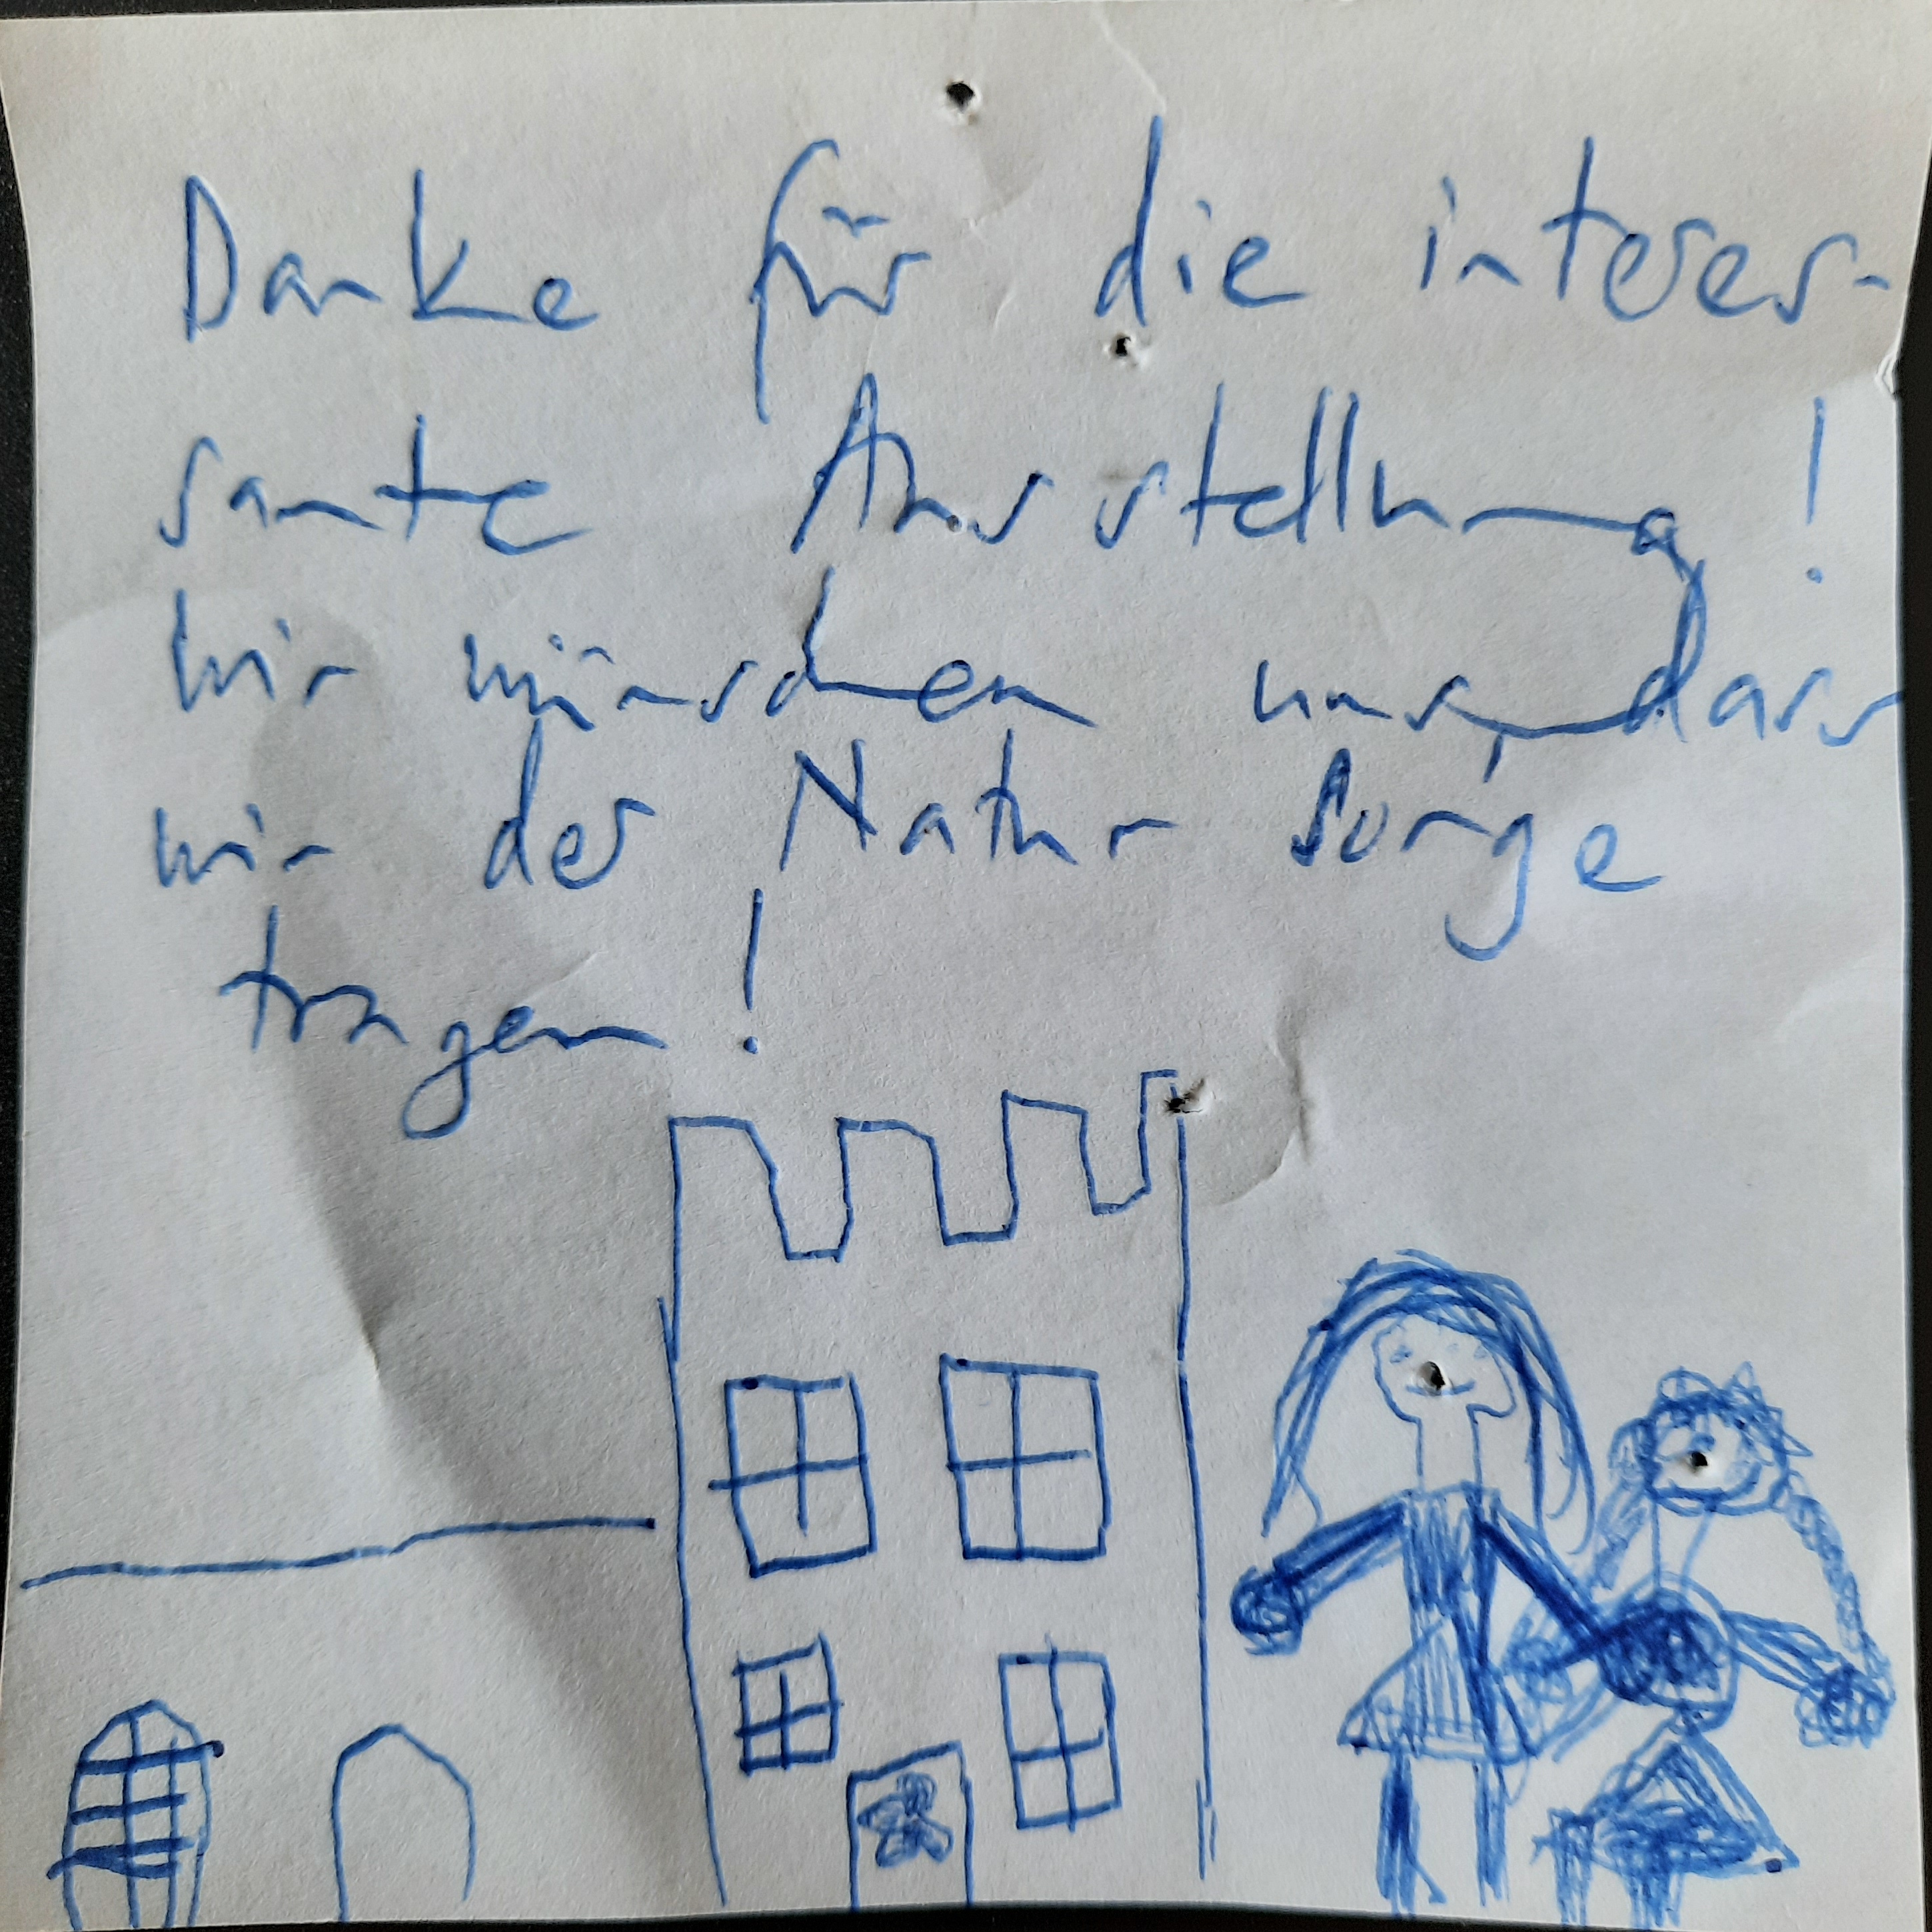 Danke für die interes-
sante Ausstellung!
Wir wünschen uns, dass
wir der Natur sorge
tragen!